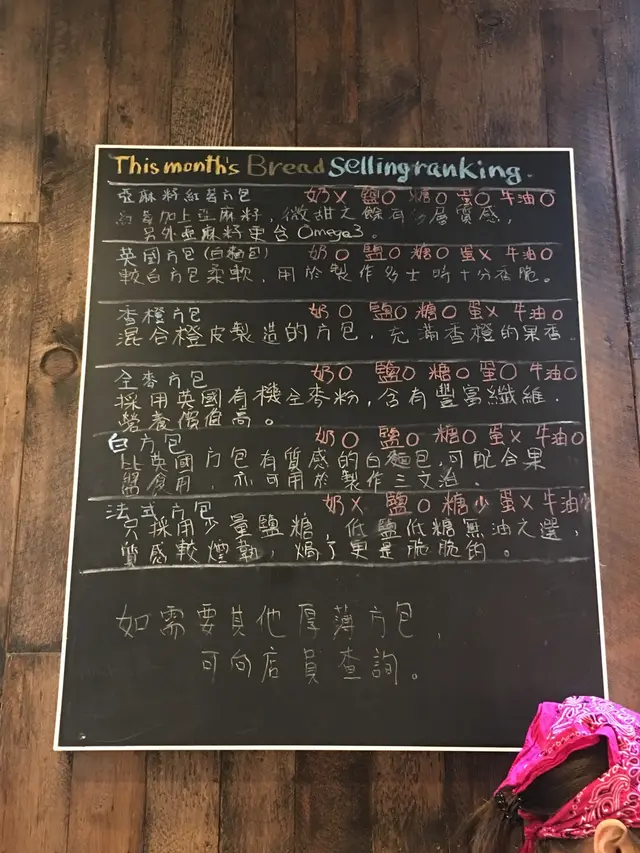 This month's Bread Selling ranking.
亞麻籽紅莓方包 奶X 鹽O 糖O 蛋O 牛油O
紅莓加上亞麻籽，微甜之餘有多層質感，
另外亞麻籽更含Omega3。
英國方包(白麵包) 奶O 鹽O 糖O 蛋X 牛油O
較白方包柔軟，用於製作多士時十分香脆。
香橙方包 奶O 鹽O 糖O 蛋X 牛油O
混合橙皮製造的方包，充滿香橙的果香
全麥方包 奶O 鹽O 糖O 蛋O 牛油O
採用英國有機全麥粉，含有豐富纖維．
營養價值高。
白方包 奶O 鹽O 糖O 蛋X 牛油O
比英國方包有質感的白麵包，可配合果
醬食用，亦可用於製作三文治．
法式方包 奶X 鹽O 糖少 蛋X 牛油
只採用少量鹽糖，低鹽低糖無油之選，
質感較煙韌，焗了更是脆脆的。
如需要其他厚薄方包，
可向店員查詢。